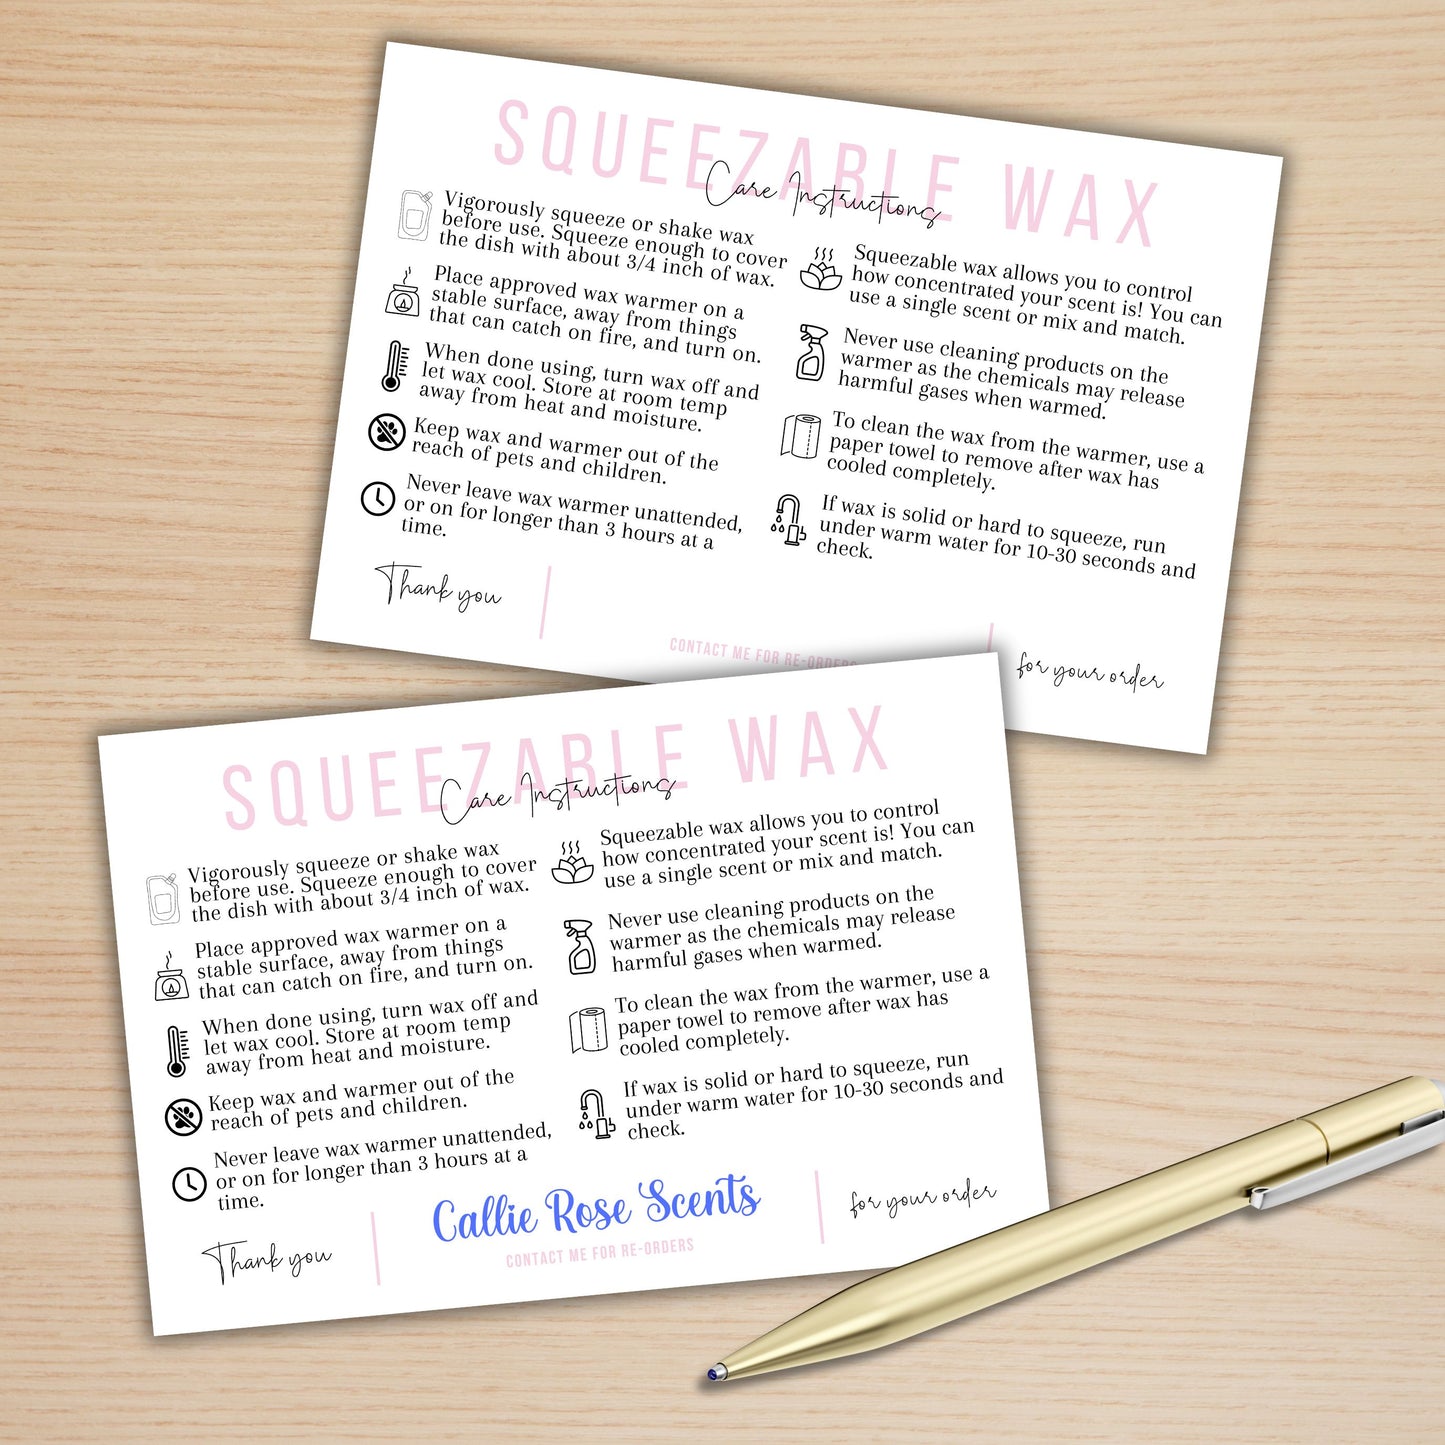 SQUEEZABLE WAX
Care Instructions
Vigorously squeeze or shake wax
before use. Squeeze enough to cover
the dish with about 3/4 inch of wax.
Place approved wax warmer on a
stable surface, away from things
that can catch on fire, and turn on.
When done using, turn wax off and
let wax cool. Store at room temp
away from heat and moisture.
Keep wax and warmer out of the
reach of pets and children.
Never leave wax warmer unattended,
or on for longer than 3 hours at a
time.
Squeezable wax allows you to control
how concentrated your scent is! You can
use a single scent or mix and match.
Never use cleaning products on the
warmer as the chemicals may release
harmful gases when warmed.
To clean the wax from the warmer, use a
paper towel to remove after wax has
cooled completely.
If wax is solid or hard to squeeze, run
under warm water for 10-30 seconds and
check.
Thank you
CONTACT ME FOR RE-ORDERS
for your order
SQUEEZABLE WAX
Care Instructions
Vigorously squeeze or shake wax
before use. Squeeze enough to cover
the dish with about 3/4 inch of wax.
Place approved wax warmer on a
stable surface, away from things
that can catch on fire, and turn on.
When done using, turn wax off and
let wax cool. Store at room temp
away from heat and moisture.
Keep wax and warmer out of the
reach of pets and children.
Never leave wax warmer unattended,
or on for longer than 3 hours at a
time.
Squeezable wax allows you to control
how concentrated your scent is! You can
use a single scent or mix and match.
Never use cleaning products on the
warmer as the chemicals may release
harmful gases when warmed.
To clean the wax from the warmer, use a
paper towel to remove after wax has
cooled completely.
If wax is solid or hard to squeeze, run
under warm water for 10-30 seconds and
check.
Thank you
Callie Rose Scents
CONTACT ME FOR RE-ORDERS
for your order